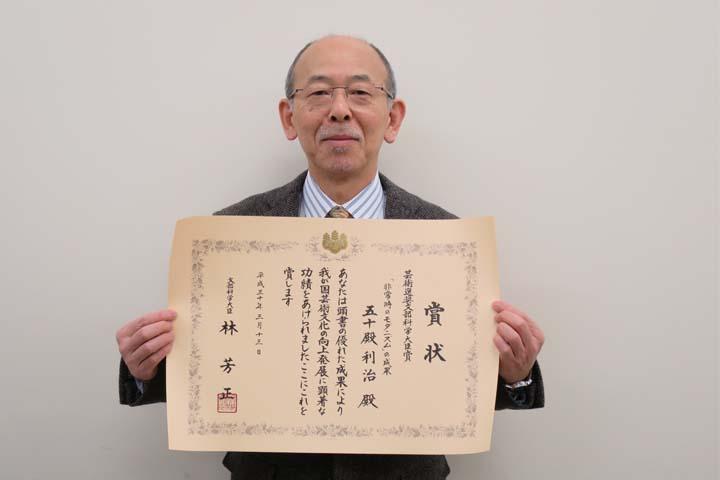 賞状
芸術選奨文部科学大臣賞
「非常時のモダニズム」の成果
五十殿利治 殿
あなたは頭書の優れた成果により
我が国芸術文化の向上発展に顕著な
功績をあげられましたここにこれを
賞します
平成三十年三月十三日
文部科学大臣
林芳正